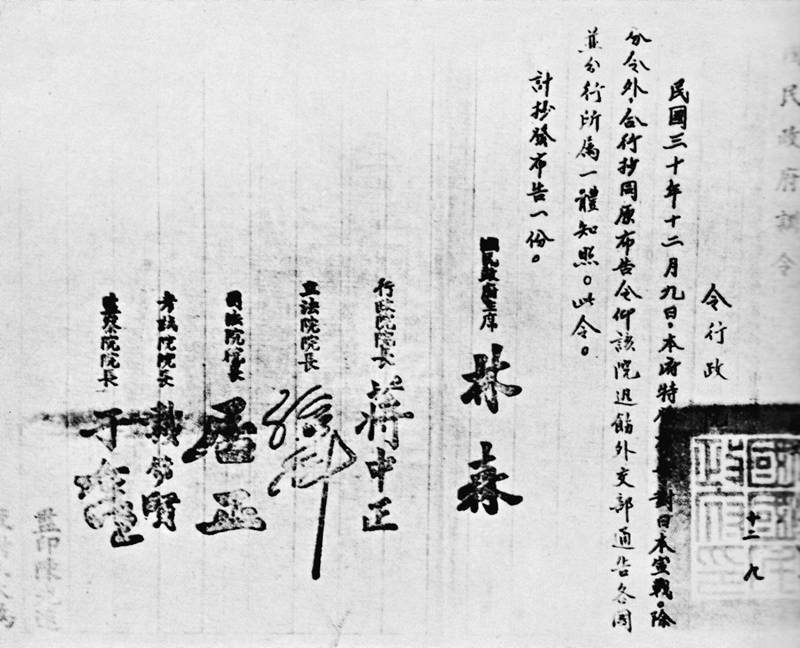 國民政府訓令
令行政
民國三十年十二月九日，本府特 對日本宣戰。除
分令外，合行抄同原布告令仰該院迅飭外交部通告各國
並分行所屬一體知照。此令。
計抄發布告一份。
國民政府主席 林森
行政院院長 蔣中正
立法院院長 孫科
司法院院長 居正
考試院院長 戴傳賢
監察院院長 于右任
監印陳
十二 九